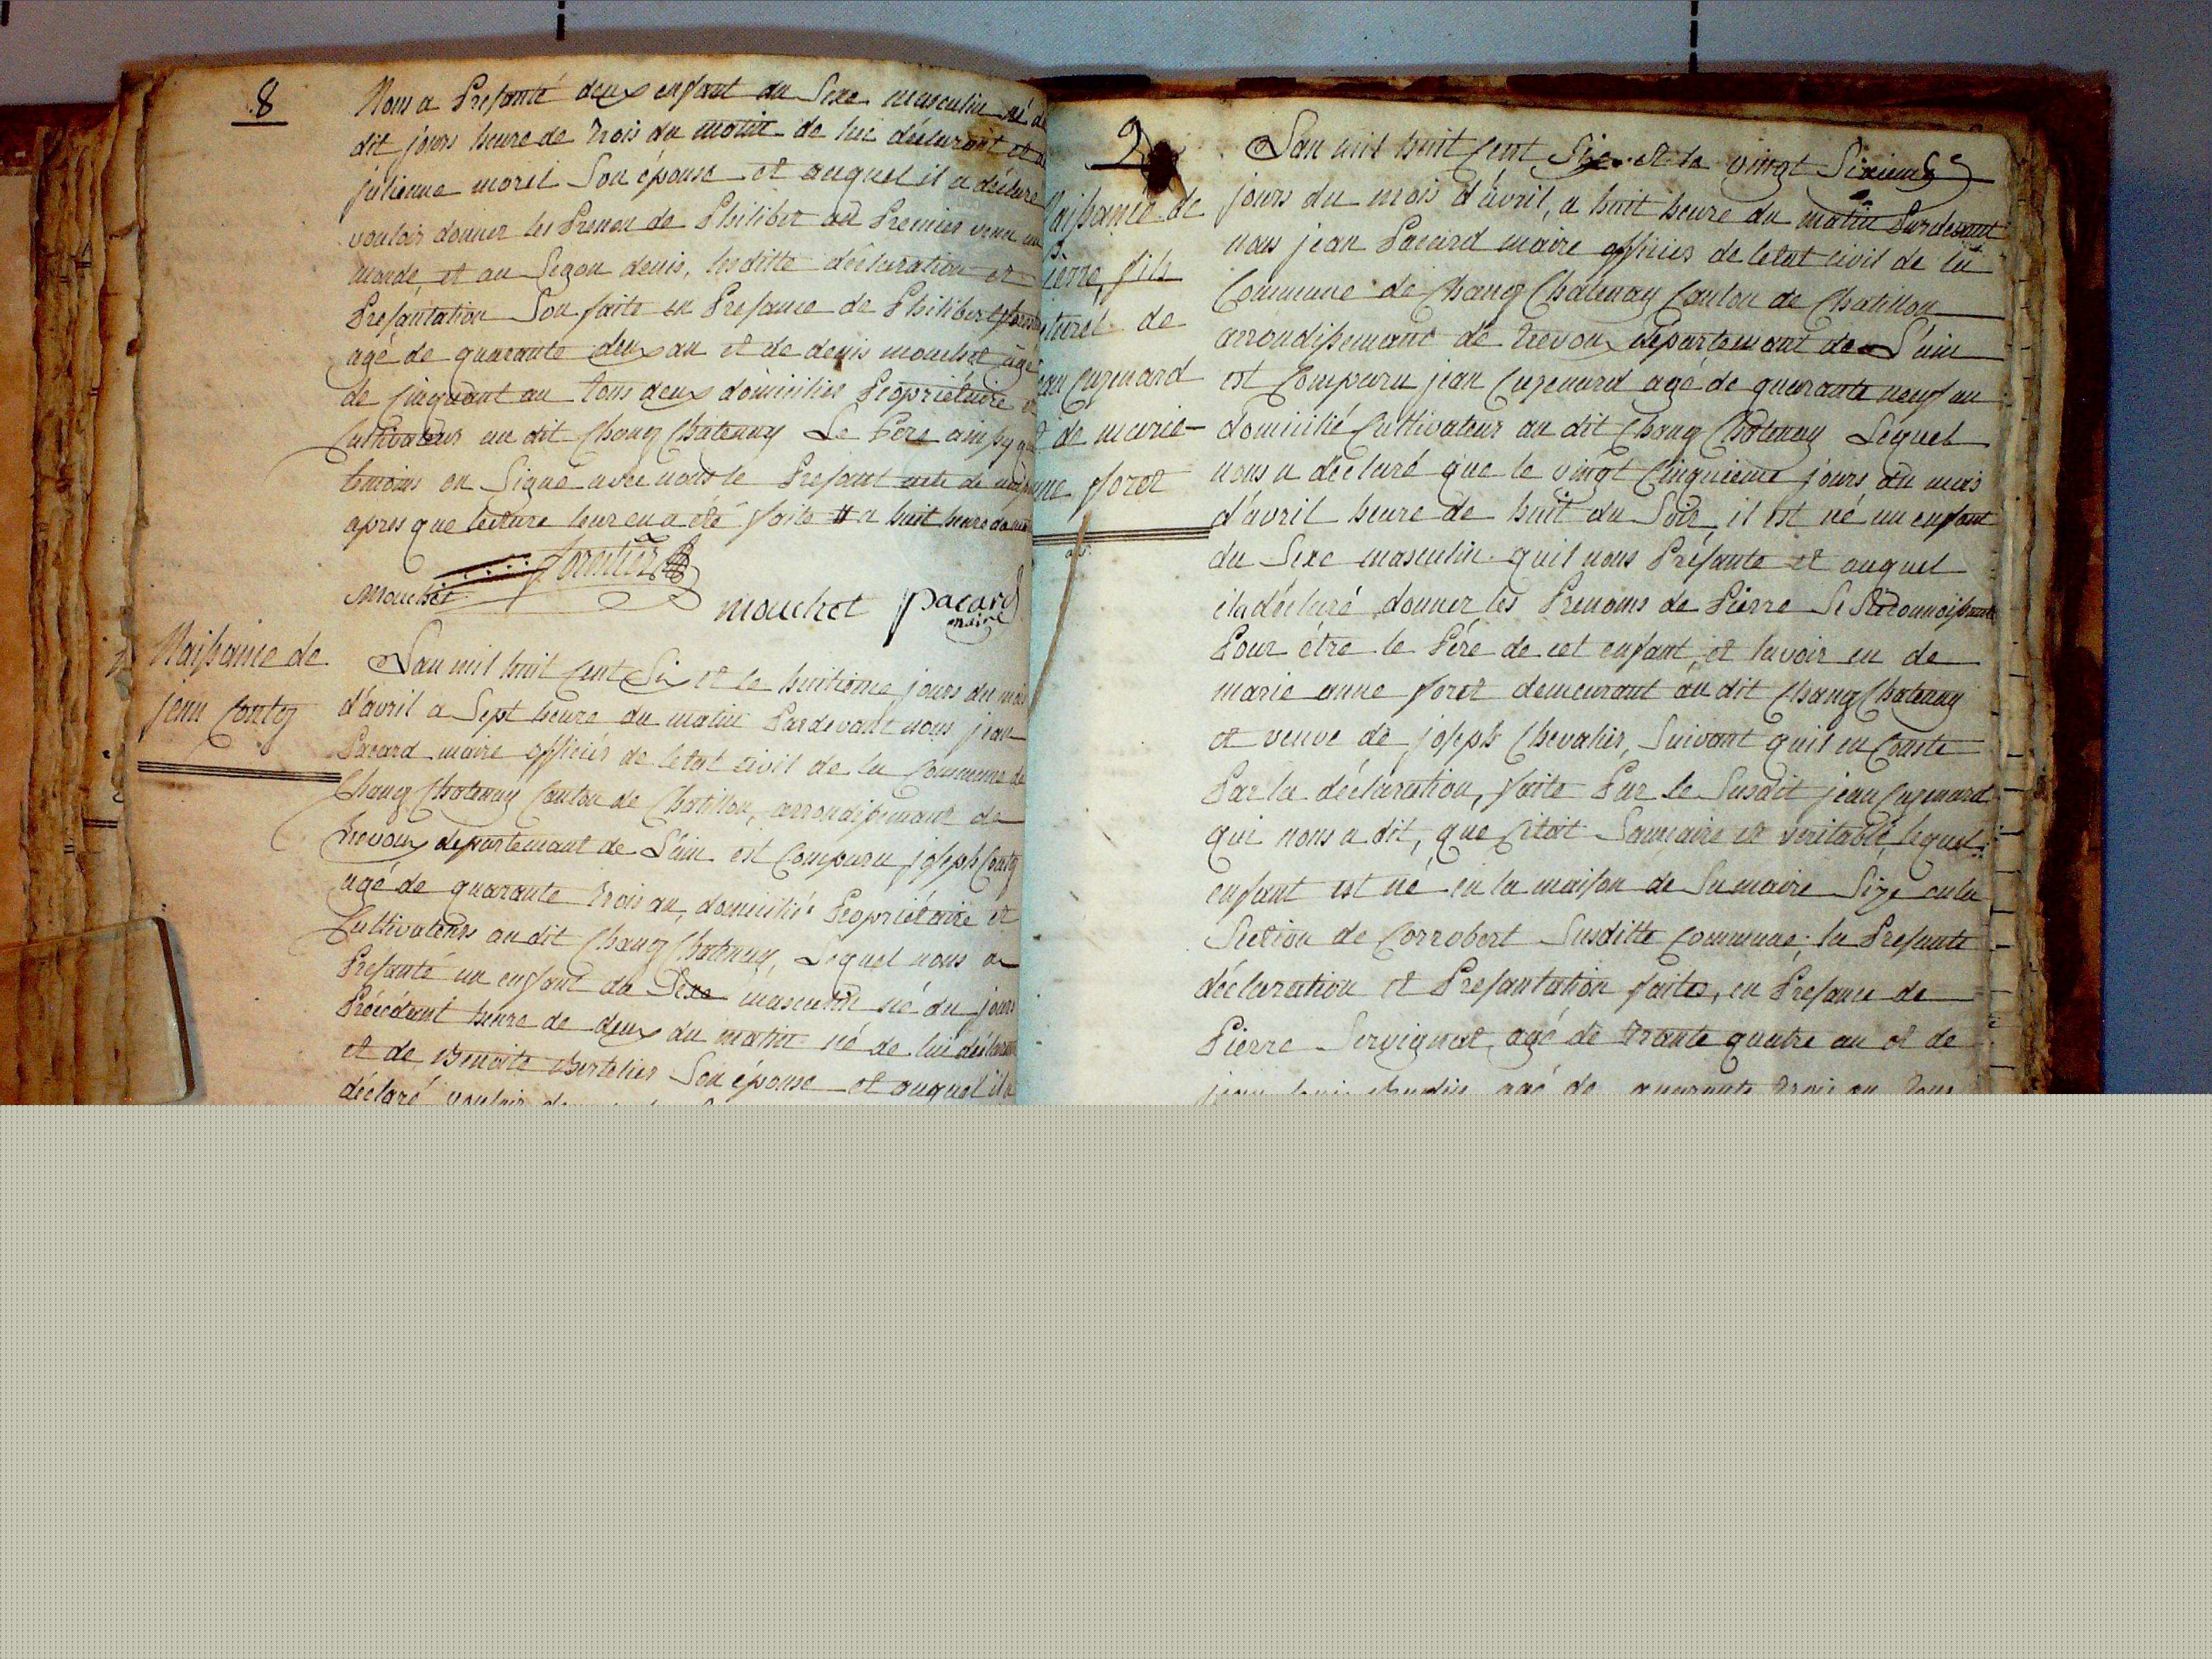 8
Nous a Présanté deux enfant du Sexe masculin né
dit jours heure de trois du matin de lui déclarant et
julienne morel Son épouse et auquel il a déclaré
vouloir donner les Prenon de Philibet au Premier venu au
monde, et au Segon denis, lesditte déclaration et
Présantation Son faite en Présance de Philibert
agé de quarante deux an et de denis mouchet agé
de Cinquant an tous deux domiciliés Propriétaire et
Cultivateurs au dit Chang Chatenay Le Pére ainsy que
temoins on Signé avec nous le Présant acte de
apres que lecture leur en a été faite a huit heure du
mouchet forestier
mouchet pacard
maire
Naissance de
jean Contey
Lan mil huit Cent Six et le huitieme jours du mois
d'avril a Sept heure du matin Pardevant nous jean
Pacard maire officiér de letat civil de la Commune de
Chang Chatenay Canton de Chatillon, arrondissemant de
Trevoux departemant de L'ain est Comparu joseph Contey
agé de quarante trois an, domicilié Propriétaire et
Cultivateurs au dit Chang Chatenay, Lequel nous a
Présanté un enfant du Sexe masculin né du jours
Précédant heure de deux du matin né de lui déclarant
et de Benoite Bertelier Son épouse et auquel il a
déclaré vouloir
9
Naissance de
Pierre, fils
naturel de
jean Cugenard
et de marie
anne foret
Lan mil huit Cent Six et le vingt Sixieme
jours du mois d'avril, a huit heure du matin Pardevant
nous jean Pacard maire officiér de letat civil de la
Commune de Chang Chatenay Canton de Chatillon
arrondissemant de Trevoux département de L'ain
est Comparu jean Cugenard agé de quarante neuf an
domicilié Cultivateur au dit Chang Chatenay Lequel
nous a déclaré que le vingt Cinquieme jours du mois
d'avril heure de huit du Soir, il est né un enfant
du Sexe masculin quil nous Présante et auquel
il a déclaré donner les Prenoms de Pierre Se Réconnoissant
Pour étre le Pére de cet enfant, et lavoir eu de
marie anne foret demeurant au dit Chang Chatenay
et veuve de joseph Chevalier, Suivant quil en Conste
Par la déclaration, faite Par le Susdit jean Cugenard
qui nous a dit, que Cétoit Sancaire et veritable, lequel
enfant est né en la maison de Sa maire Size en la
Section de Corrobert Susditte Commune; la Présante
déclaration et Présantation faites, en Présance de
Pierre Servignat agé de trante quatre an et de
jean agé de quarante trois an tous